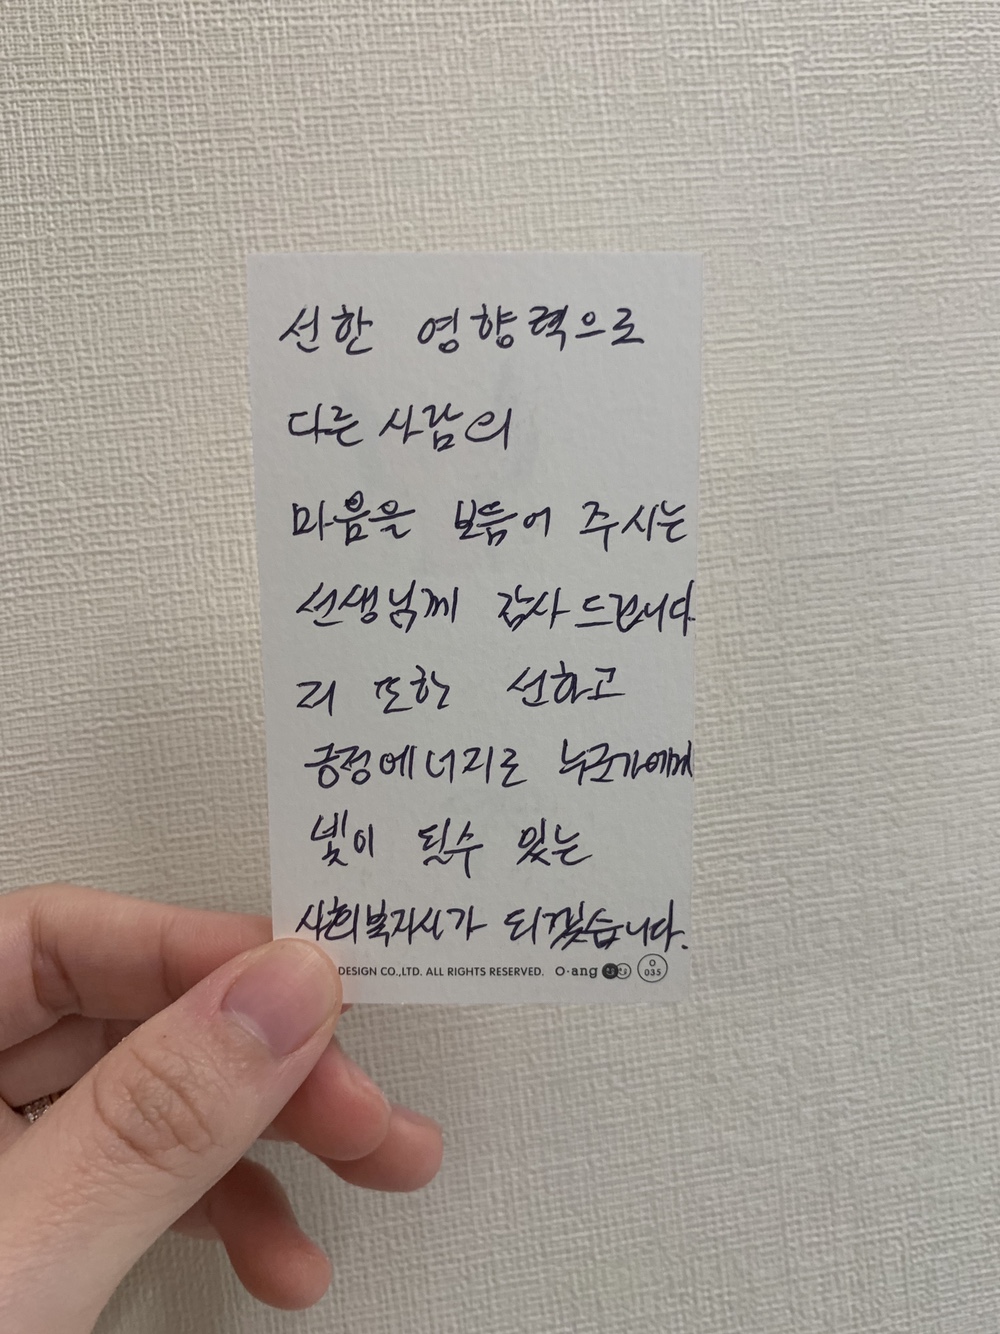 선한 영향력으로
다른 사람의
마음을 보듬어 주시는
선생님께 감사드립니다
저 또한 선하고
긍정에너지로 누군가에게
빛이 될수 있는
사회복지사가 되겠습니다.
DESIGN CO.,LTD. ALL RIGHTS RESERVED. O·ang O 035